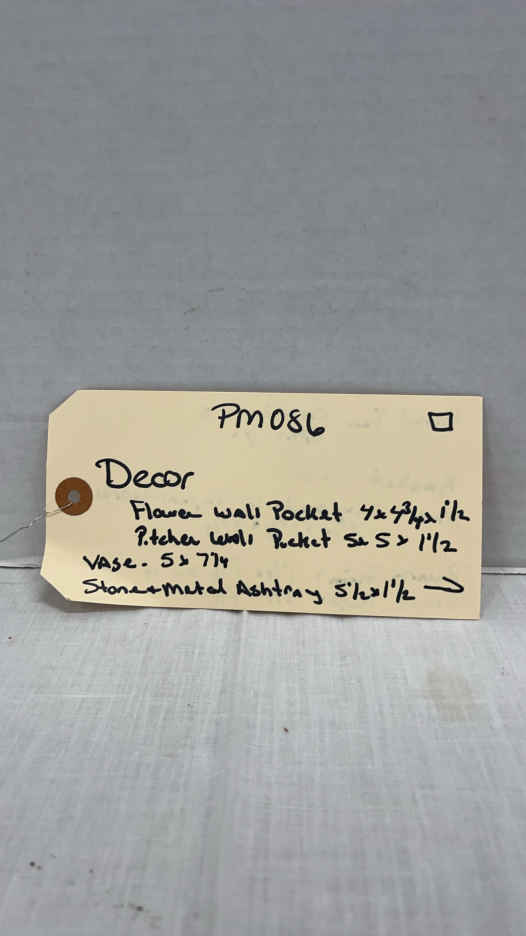 PM086
Decor
Flower Wall Pocket 4x4 3/4x 1 1/2
Pitcher Wall Pocket 5x 5 x 1 1/2
Vase - 5 x 7 1/4
Stone + Metal Ashtray 5 1/2 x 1 1/2 →